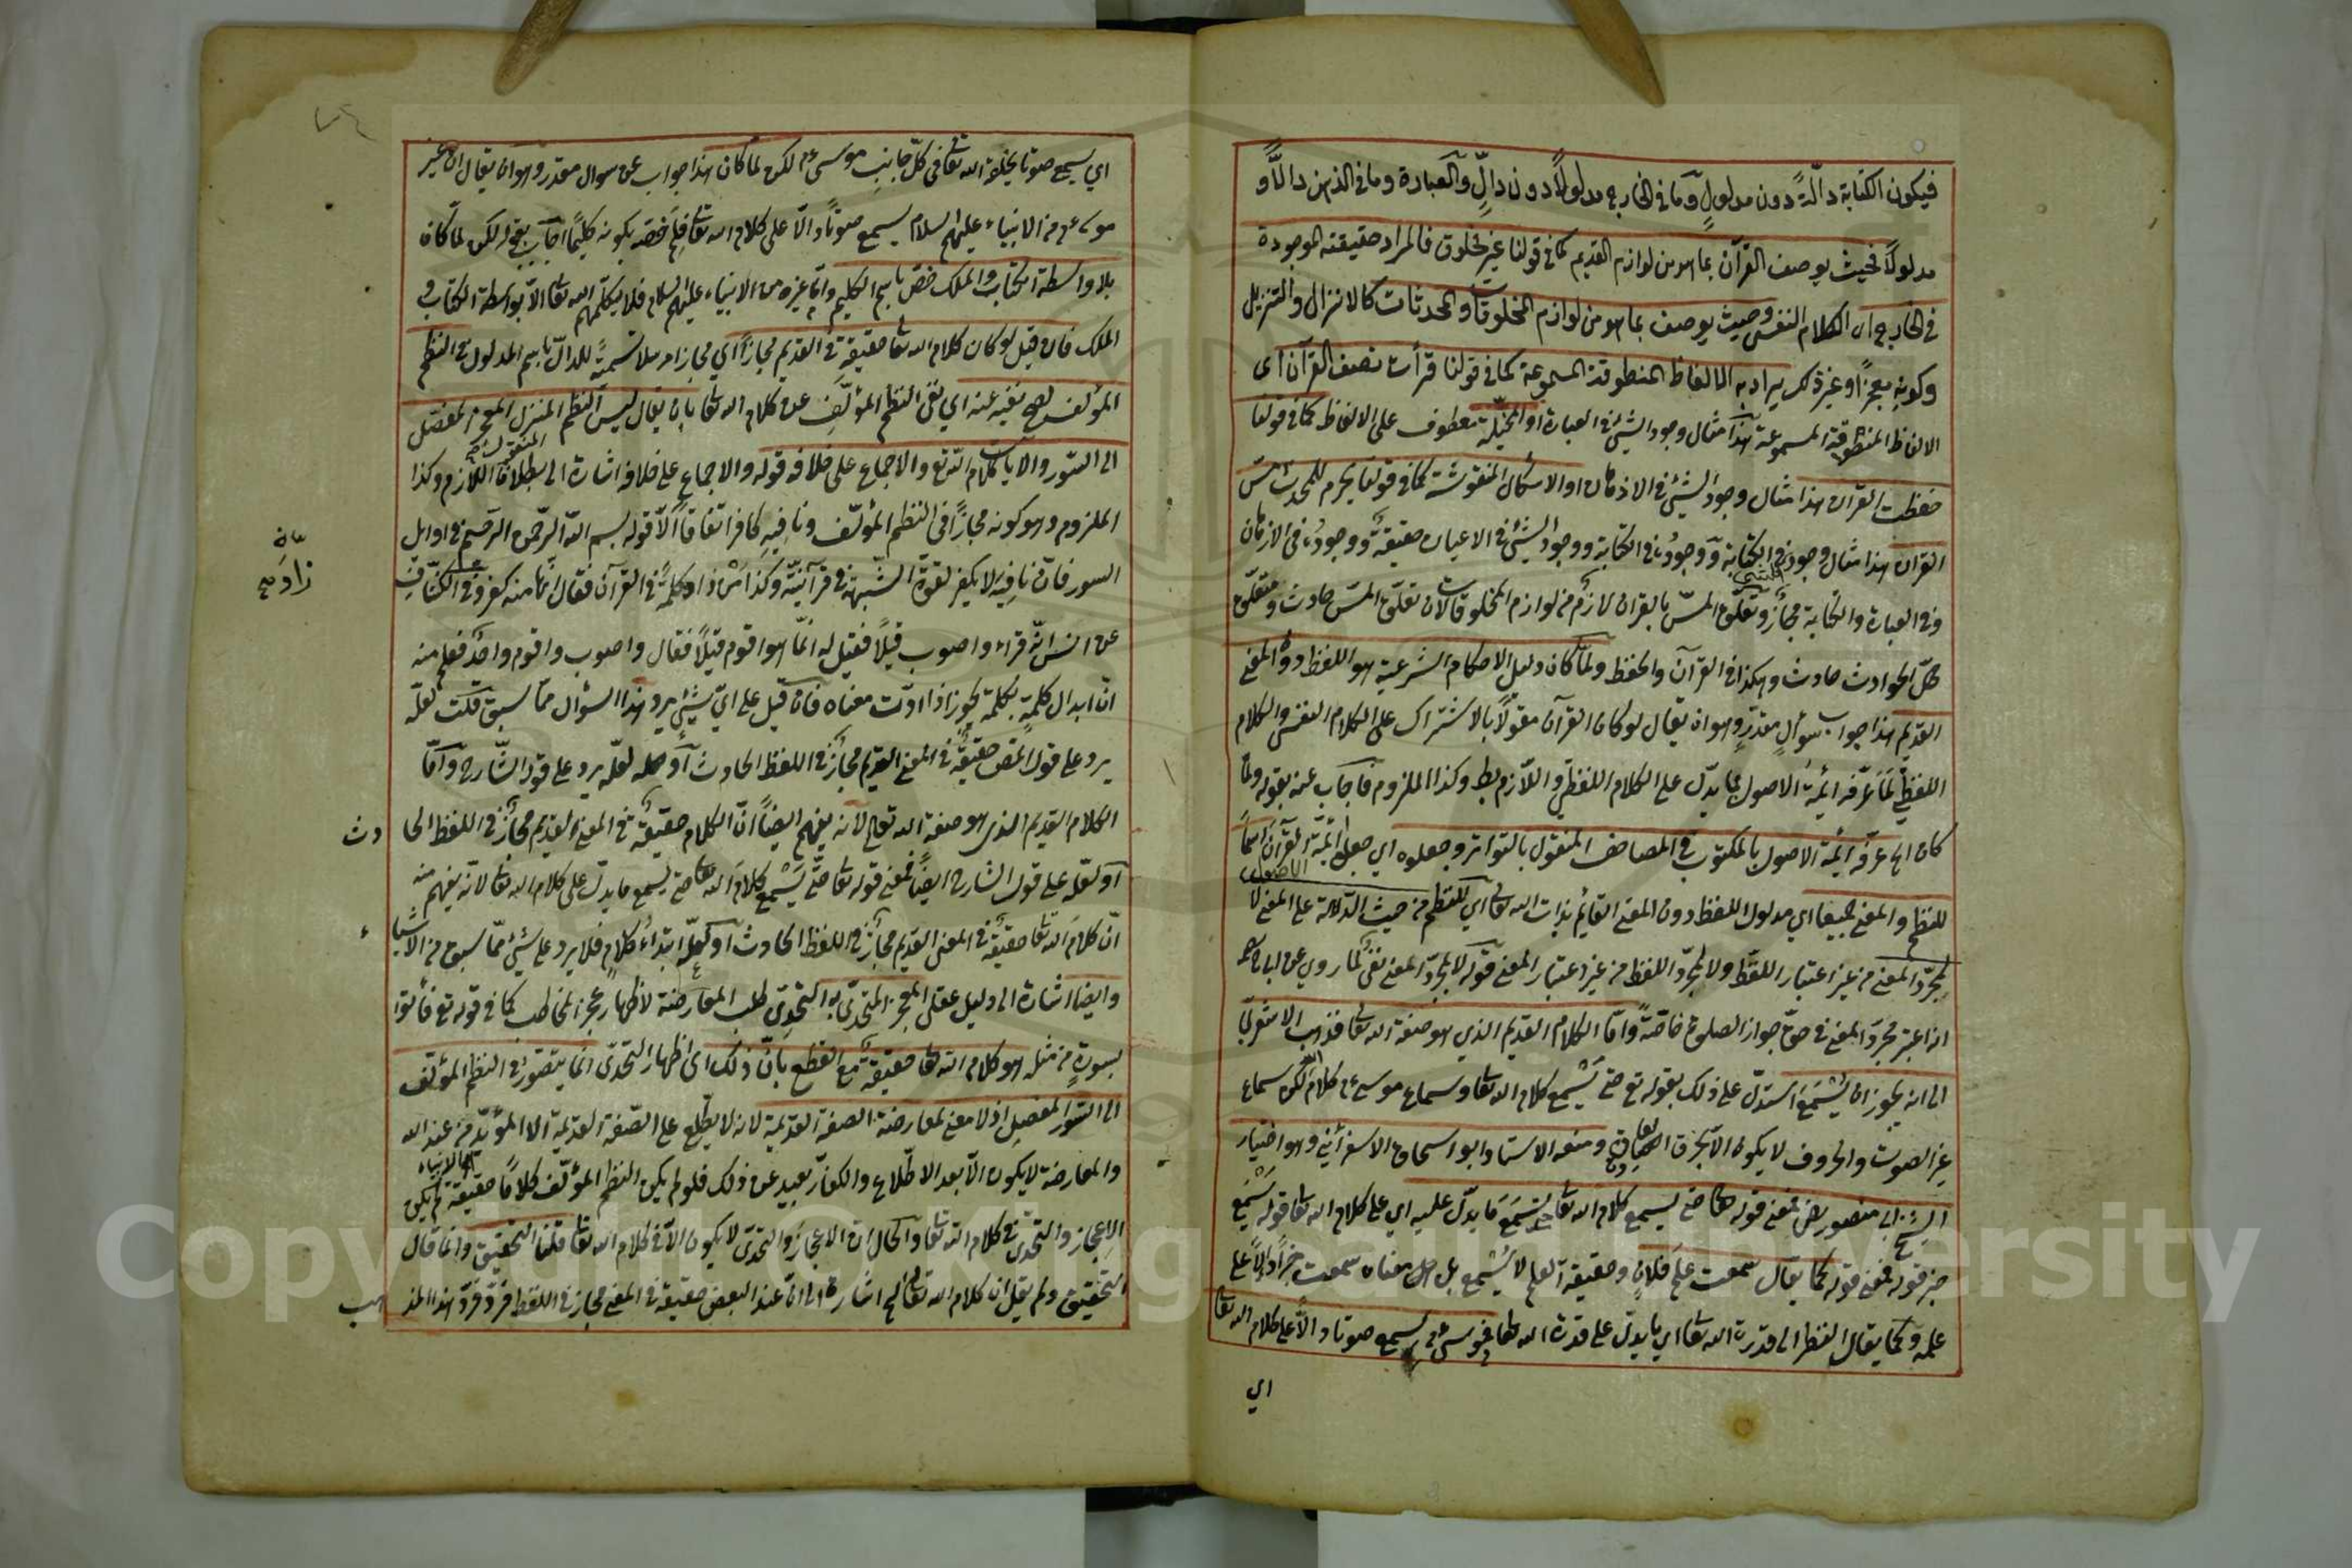 فيكون الكتابة دالّةً دون مدلولٍ وما في الخارج مدلولاً دون دالٍّ والعبارة وما في الذهن دالاًّ و
مدلولاً فحيث يوصف القرآن بما هو من لوازم القديم كما في قولنا غير مخلوق فالمراد حقيقته الموجودة
في الخارج اى الكلام النفسى وحيث يوصف بما هو من لوازم المخلوقات والمحدثات كالانزال والتنزيل
وكونه معجزًا وغير ذلك يراد به الالفاظ المنطوقة المسموعة كما في قولنا قرأت نصف القرآن اى
الالفاظ المنطوقة المسموعة هذا مثال وجود الشئ في العبارة او المخيّلة معطوف على الالفاظ كما في قولنا
حفظت القرآن هذا مثال وجود الشئ في الاذهان او الاشكال المنقوشة كما في قولنا يحرم للمحدث مسّ
القران هذا مثال وجود الشئ في الكتابة ووجوده في الكتابة ووجود الشئ في الاعيان حقيقةٌ ووجوده في الاذهان
وفي العبارة والكتابة مجازٌ وتعلّق المسّ بالقران لازم من لوازم المخلوقات لان تعلّق المسّ حادث ومتعلّق
الحوادث حادث وهكذا في القرآن والحفظ ولمّا كان دليل الاحكام الشرعية هو اللفظ دون المعنى
القديم هذا جواب سؤالٍ مقدّرٍ وهو ان يقال لو كان القرآن مقولاً بالاشتراك على الكلام النفسى والكلام
اللفظيّ لمَا عَرّفه ائمة الاصول بما يدّل على الكلام اللفظيّ واللّازم بط وكذا الملزوم فاجاب عنه بقوله ولمّا
كان الخ عرفه ائمة الاصول بالمكتوب في المصاحف المنقول بالتواتر وجعلوه اي جعل ائمّة الاصول القرآن اسماً
للنظم والمعنى جميعا اي مدلول اللفظ دون المعنى القائم بذات الله تعالى اي للنظم من حيث الدّلالة على المعنى لا
لمجرّد المعنى من غير اعتبار اللفظ ولا لمجرّد اللفظ من غير اعتبار المعنى قوله لا لمجرّد المعنى نفىٌ لما روي عن
انه اعتبر مجرّد المعنى في حقّ جواز الصلوة خاصّةً وامّا الكلام القديم الذي هو صفة الله تعالى فذهب الاشعريّ
الى انه يجوز ان يُسْمَعَ استدلّ على ذلك بقوله تع حتى يَسْمع كلام الله تعا وسماع موسى عم كلامَه لكن سماع
غير الصوت والحروف لا يكون الّا بخرق العادة ومنعه الاستاد ابو اسحاق الاسفرائني وهو اختيار
الشيخ ابى منصور رض فمعنى قوله تعا حتى يسمع كلام الله تعا يَسْمَعَ مَا يدّل عليه اي على كلام الله تعا قوله يَسْمَع
خبر قوله فمعنى قوله كما يقال سمعت علمَ فلانٍ وحقيقة العلم لا يُسْمع بل معناه سمعت خبرًا دالاًّ على
علمه وكما يقال انظر الى قدرة الله تعا اي ما يدلّ على قدرة الله تعا فموسى عم سمع صوتا دالاًّ على كلام الله تعا
اى
اي سمع صوتا يخلقه الله تعا في كلّ جانبِ موسى عم لكن لمّا كان هذا جواب عن سوال مقدر وهو ان يقال ان غير
موسى عم من الانبياء عليهم السلام يسمع صوتًا دالاّ على كلام الله تعا فلِمَ خُصّ بكونه كليمًا اجاب بقوله لكن لمّا كان
بلا واسطة الكتاب والملك خصّ باسم الكليم وامّا غيره من الانبياء عليهم السلام فلا يكلّمهم الله تعا الاّ بواسطة الكتاب و
الملك فان قيل لو كان كلام الله تعا حقيقة في القديم مجازاً اي مجازا مرسلا تسميةً للدالّ باسم المدلول في النظم
المؤلف لصح نفيه عنه اي نفى النظم المؤلّف عن كلام الله تعا بان يقال ليس النظم المنزل المعجز المفصّل
الى السّور والآيات كلام الله تع والاجماع على خلافه قوله والاجماع على خلافه اشارة الى بطلان اللازم وكذا
الملزوم وهو كونه مجازًا في النظم المؤلّف ونافيهِ كافر اتفاقاً الّا قوله بسم الله الرّحمن الرّحيم في اوايل
السور فانّ نافِيَهُ لا يكفر لقوّة الشّبهة في قرآنيّته وكذا مَنْ زاد كلمةً في القرآن فقال انّها منه كفر وفي الكشّاف
زادَ
عن انس انّه قراء واصوب قيلاً فقيل له انّما هو اقوم قيلاً فقال واصوب واقوم واحد فعلم منه
انّ ابدال كلمةٍ بكلمة يجوز اذا ادّت معناه فان قيل على ايّ شيئٍ يرد هذا السؤال ممّا سبق قلت لعلّه
يرد على قول المص حقيقةٌ في المعنى القديم مجازٌ في اللفظ الحادث او لعلّه يرد على قول الشّارح وامّا
الكلام القديم الذى هو صفة الله تعالى لانه يفهم ايضاً انّ الكلام حقيقةٌ في المعنى القديم مجازٌ في اللفظ الحا دث
او لعلّه على قول الشارح ايضاً فمعنى قوله تعا حتّى يَسْمع كلامَ الله تعا حتى يسمع ما يدلّ على كلام الله تعا لانه يفهم منه
انّ كلامَ الله تعا حقيقةٌ في المعنى القديم مجازٌ في اللفظ الحادث او لعلّه ابتداءُ كلامٍ فلا يرد على شئٍ ممّا سبق من الاشيا ء
وايضا اشارة الى دليل عقلى المعجز المتحدّى به التحدّى طلب المعارضة لاظهار عجز المخاطب كما في قوله تع فأتوا
بسورةٍ من مثله هو كلام الله تعا حقيقةً مع القطع بانّ ذلك اى اظهار التحدّى انّما يتصّور في النظم المؤلّف
الى السّور المفصل اذ لا معنى لمعارضة الصفة القديمة لانه لا يطّلع على الصّفة القديمة الا المؤيّد من عند الله
والمعارضة لا يكون الّا بعد الاطّلاع والكفّار بعيد عن ذلك فلو لم يكن النظم المؤلّف كلاماً حقيقةً لم يكن
الاعجاز والتحدّى في كلام الله تعا والحال انّ الاعجاز والتحدّى لا يكون الّا في كلام الله تعا قلنا التحقيق وانّما قال
التحقيق ولم يقل ان كلام الله تعا الخ اشارة الى انّ عند البعض حقيقة في المعنى مجاز في اللفظ فردّ هذا المذ هب